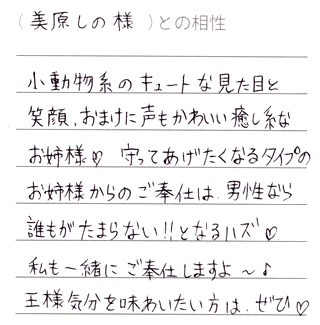 (美原しの様)との相性
小動物系のキュートな見た目と
笑顔、おまけに声もかわいい癒し系な
お姉様♡ 守ってあげたくなるタイプの
お姉様からのご奉仕は、男性なら
誰もがたまらない!!となるハズ♡
私も一緒にご奉仕しますよ〜♪
王様気分を味わいたい方は、ぜひ♡